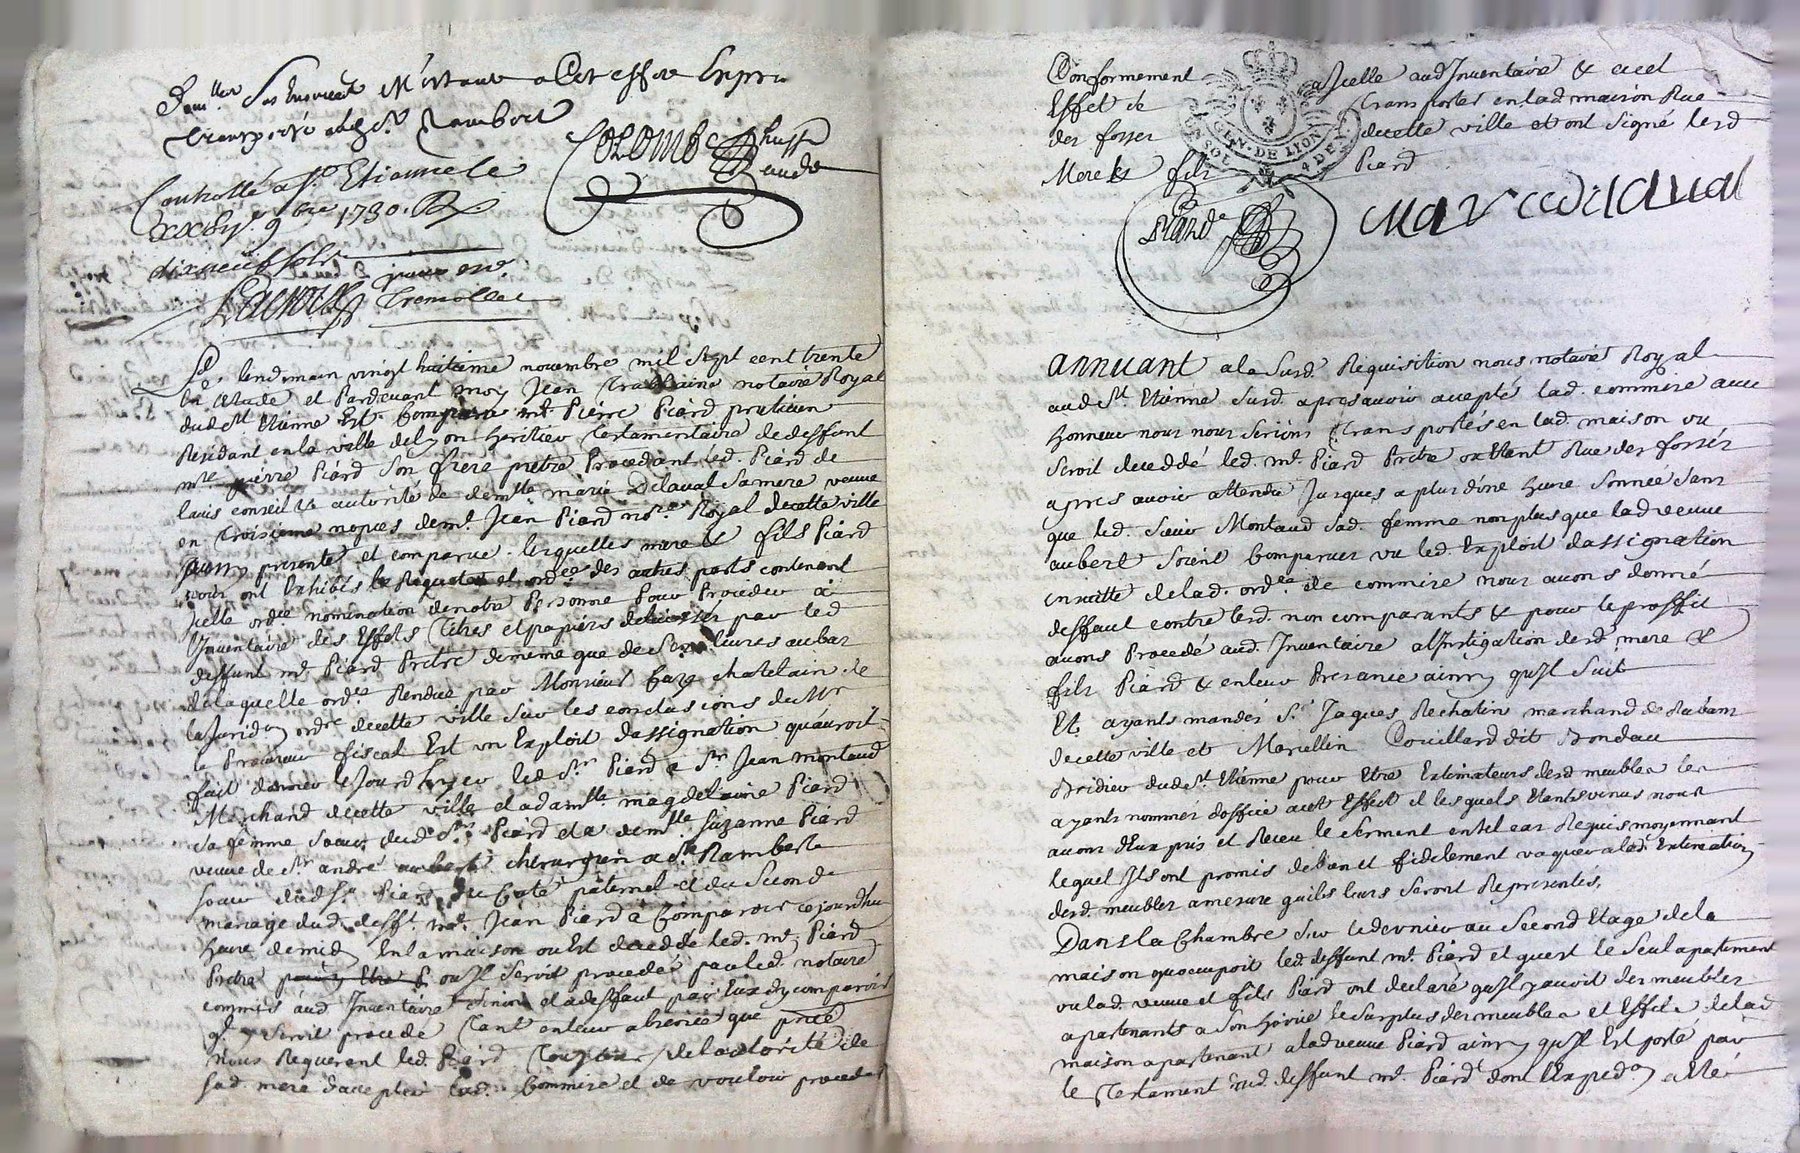 Conformement a Jcelle aud Jnventaire & a cet
Effet de transportés en lad. maison Rue
des fosses decette ville et ont signé lesd
Mere & fils Piard
GEN. DE LYON
UN SOL 4 DE
COLOMB
Controllé a St. Etienne le
xxbiij. 9bre 1730.
dixneuf sols
Piard
marie delaual
Le lendemain vingt huitieme novembre mil sept cent trente
En Etude et Pardevant moy Jean notaire Royal
dud St Etienne Est Comparu mr. Pierre Piard praticien
Résidant en la ville de Lyon heritier testamentaire de deffunt
mre pierre Piard son frere prêtre Procedant led. Piard de
lavis conseil & autorité de demlle marie Delaval sa mere veuve
en troisieme nopces de mr. Jean Piard nore Royal decette ville
presente et comparue. lesquelles mere & fils Piard
nous ont Exhibés la Requete et ordce des autres parts contenant
Jcelle ordce nomination de notre Personne pour Proceder a
Jnventaire des Effets titres et papiers delaissés par led
deffunt mr. Piard Prêtre de meme que de livres au bas
de laquelle ordce Rendue par Monsieur chatelain de
la Juridon ordre decette ville sur les conclusions du Mr
le Procureur fiscal Est un Exploit dassignation quauroit
fait donner le Jourdhyer led Sr. Piard a Sr Jean montaud
Marchand decette ville et a damlle magdelaine Piard
sa femme soeur dud Sr. Piard et a demlle Suzanne Piard
veuve de Sr andré aubert chirurgien a St Rambert
soeur dud Sr. Piard du Coté paternel et du Second
mariage dud. defft. mr. Jean Piard a Comparoir ce jourdhui
heure de midy En la maison ou Est decedé led. mr. Piard
Prêtre ou Jl seroit procedé par led. notaire
commis aud Jnventaire et a deffaut par Eux dy comparoir
qJl y seroit procedé tant en leur absence que pnce
nous Requerant led. Piard de lautorité de
sad mere daccepter lad. Commise et de vouloir proceder
annuant a la susd. Requisition nous notaire Royal
aud St. Etienne susd. apres avoir accepté lad. commise avec
honneur nous nous serions transportés en lad. maison ou
seroit decedé led. mr. Piard Prêtre Rue des fossés
apres avoir attendu Jusques a plus dune heure sonnée sans
que led. Sieur Montaud sad. femme non plus que lad veuve
aubert soient Comparus vu led. Exploit dassignation
ensuitte de lad. ordce de commise nous avons donné
deffaut contre lesd. non comparants & pour le proffit
avons Procedé aud. Jnventaire a lJnstigation desd. mere &
fils Piard & en leur Presence ainsy quJl suit
Et ayants mandés Sr Jaques Rechatin marchand de Rubans
decette ville et Marcellin Couillard dit Bondau
dud St. Etienne pour Etre Estimateurs desd meubles les
ayants nommés doffice a cet Effect et lesquels Etants venus nous
avons deux pris et Receu le serment en tel cas Requis moyennant
lequel Jls ont promis de bien et fidelement vaquer a lad. Estimation
desd. meubles a mesure quils leurs seront Representés.
Dans la Chambre sur le dernier au Second Etage de la
maison quoccupoit led. deffunt mr. Piard et quest le seul apartement
ou lad. veuve et fils Piard ont declaré quJl y avoit des meubles
apartenants a son hoirie le surplus des meubles et Effets de lad
maison apartenant a lad veuve Piard ainsy quJl Est porté par
le testament dud. deffunt mr. Piard dont Expedon a Eté